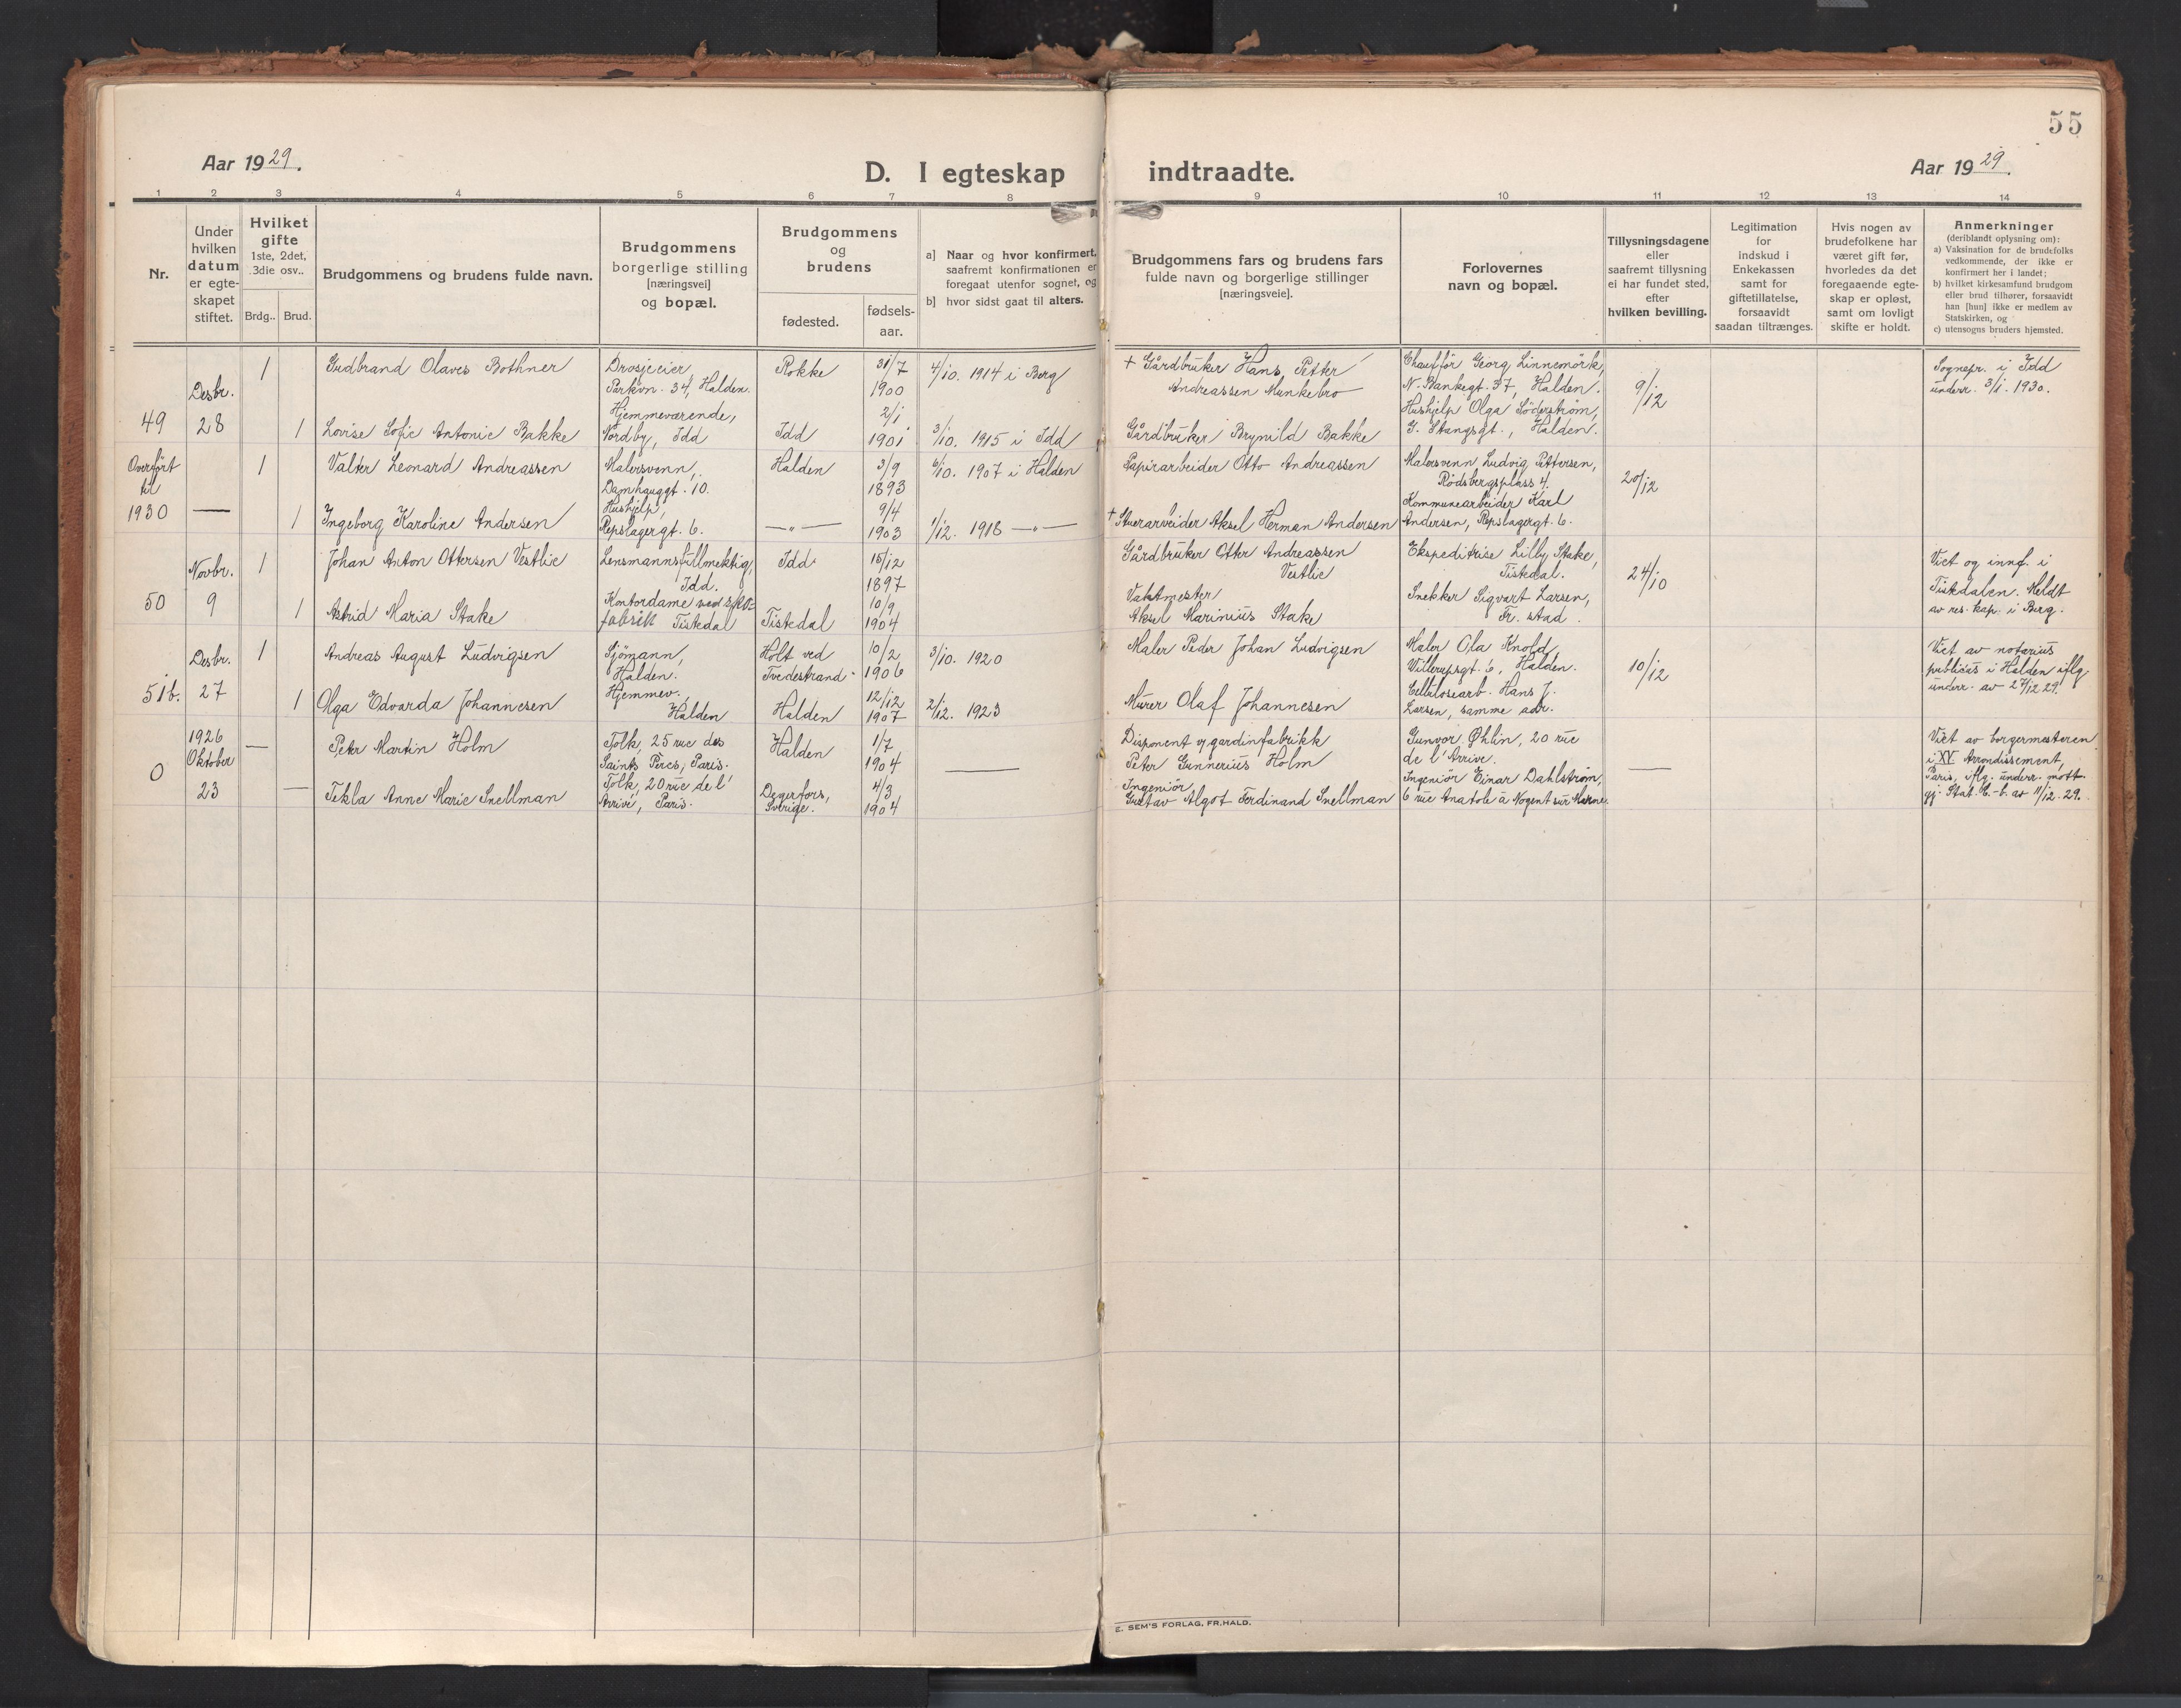 55
Aar 1929.
D. I egteskap indtraadte.
Aar 1929.
1 2 3 4 5 6 7 8 9 10 11 12 13 14
Nr.
Under
hvilken
datum
er egte-
skapet
stiftet.
Hvilket
gifte
1ste, 2det,
3die osv..
Brdg.. Brud.
Brudgommens og brudens fulde navn.
Brudgommens
borgerlige stilling
[næringsvei]
og bopæl.
Brudgommens
og
brudens
fødested.
fødsels-
aar.
a] Naar og hvor konfirmert,
saafremt konfirmationen er
foregaat utenfor sognet, og
b] hvor sidst gaat til alters.
Brudgommens fars og brudens fars
fulde navn og borgerlige stillinger
[næringsveie].
Forlovernes
navn og bopæl.
Tillysningsdagene
eller
saafremt tillysning
ei har fundet sted,
efter
hvilken bevilling.
Legitimation
for
indskud i
Enkekassen
samt for
giftetillatelse,
forsaavidt
saadan tiltrænges.
Hvis nogen av
brudefolkene har
været gift før,
hvorledes da det
foregaaende egte-
skap er opløst,
samt om lovligt
skifte er holdt.
Anmerkninger
(deriblandt oplysning om):
a) Vaksination for de brudefolks
vedkommende, der ikke er
konfirmert her i landet;
b) hvilket kirkesamfund brudgom
eller brud tilhører, forsaavidt
han [hun] ikke er medlem av
Statskirken, og
c) utensogns bruders hjemsted.
49
Desbr.
28
1
Gudbrand Olaves Bothner
Drosjeeier,
Parkvn. 34, Halden.
Rokke
31/7
1900
4/10. 1914 i Berg
+ Gårdbruker Hans Petter
Andreassen Munkebro
Chauffør Georg Linnemörk,
N. Bankegt. 37, Halden.
9/12
Sognepr. i Idd
underr. 3/1. 1930.
1
Lovise Sofie Antonie Bakke
Hjemmeværende,
Nordby, Idd
Idd
2/1
1901
3/10. 1915 i Idd
Gårdbruker Brynild Bakke
Hushjelp Olga Söderström,
G. Stangsgt., Halden.
Overført
til
1930
—
1
Valter Leonard Andreassen
Malersvenn,
Damhauggt. 10.
Halden
3/9
1893
6/10. 1907 i Halden
Papirarbeider Otto Andreassen
Malersvenn Ludvig Pettersen,
Rödsbergsplass 4.
20/12
1
Ingeborg Karoline Andersen
Hushjelp,
Repslagergt. 6.
—"—
9/4
1903
1/12. 1918 —"—
+ Stuerarbeider Aksel Herman Andersen
Kommunearbeider Karl
Andersen, Repslagergt. 6.
50
Novbr.
9
1
Johan Anton Ottersen Vestlie
Lensmannsfullmektig,
Idd.
Idd
15/12
1897
Gårdbruker Otter Andreassen
Vestlie
Ekspeditrise Lilly Stake,
Tistedal.
24/10
Viet og innf. i
Tistedalen. Meldt
av res. kap. i Berg.
1
Astrid Maria Stake
Kontordame ved
fabrikk Tistedal
Tistedal
10/9
1904
Vaktmester
Aksel Marinius Stake
Snekker Sigvart Larsen,
Fr. stad.
51b.
Desbr.
27
1
Andreas August Ludvigsen
Sjömann,
Halden.
Holt ved
Tvedestrand.
10/2
1906
3/10. 1920
Maler Peder Johan Ludvigsen
Maler Ola Knold,
Villerupsgt. 6, Halden.
10/12
Viet av notarius
publicus i Halden iflg.
underr. av 27/12 29.
1
Olga Edvarda Johannesen
Hjemmev.,
Halden
Halden
12/12
1907
2/12. 1923
Murer Olaf Johannesen
Cellulosearb. Hans J.
Larsen, samme adr.
0
1926
Oktober
23
—
Peter Martin Holm
Tolk, 25 rue des
Saints Peres, Paris.
Halden
1/7
1904
—
Disponent v. gardinfabrikk
Peter Gunnerius Holm
Gunvor Øhlin, 20 rue
de l'Arrive.
—
Viet av borgermesteren
i XV Arrondissement,
Paris, iflg. underr. mott.
gj. Stat. C.-b. av 11/12. 29.
—
Tekla Anne Marie Snellman
Tolk, 20 rue de l'
Arrivé, Paris.
Degerfors,
Sverige.
4/3
1904
Ingeniör
Gustav Algot Ferdinand Snellman
Ingeniör Einar Dahlström,
6 rue Anatole à Nogent sur Marne.
E. SEM'S FORLAG, FR.HALD.